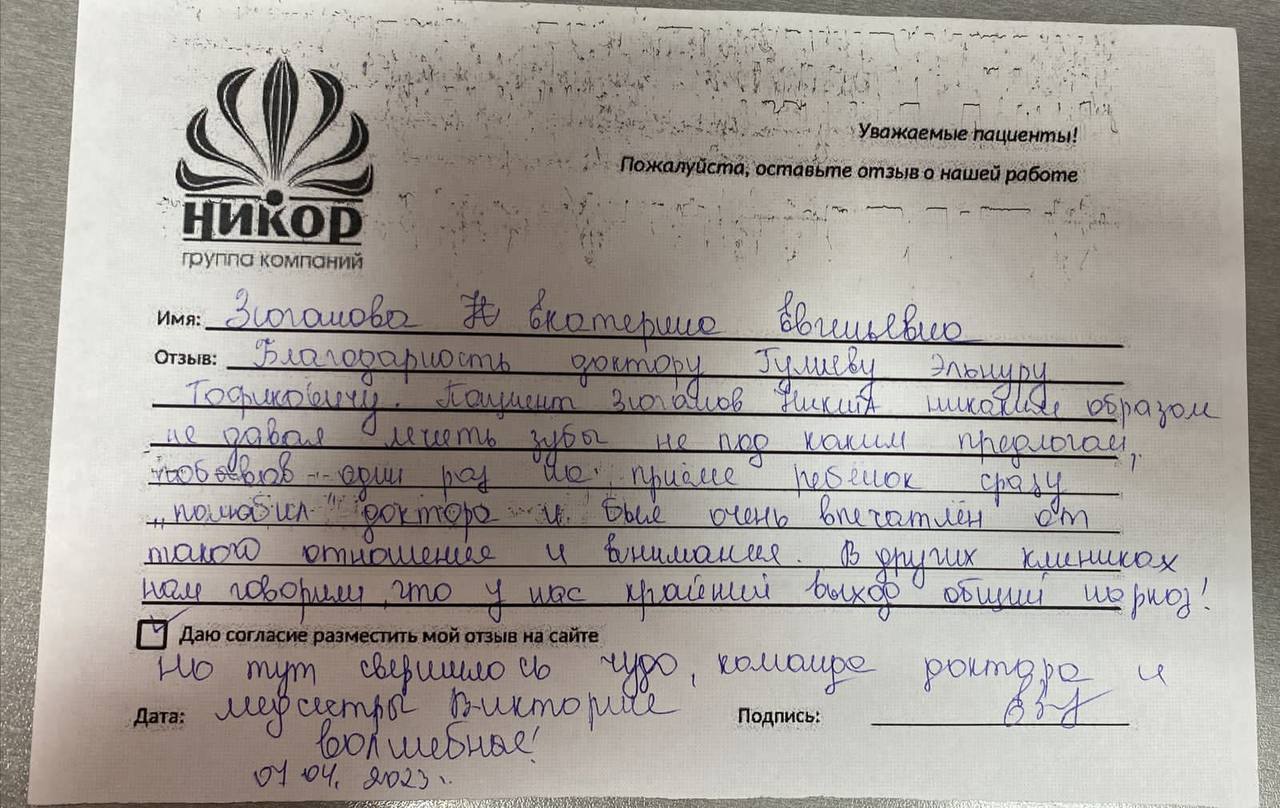 Уважаемые пациенты!
Пожалуйста, оставьте отзыв о нашей работе
НИКОР
группа компаний
Имя: Зюганова Екатерина Евгеньевна
Отзыв: Благодарность доктору Гулиеву Эльнуру
Тофиковичу. Пациент Зюганов Никита никаким образом
не давал лечить зубы не под каким предлогам,
побывав один раз на приёме ребёнок сразу
"полюбил" доктора и был очень впечатлён от
такого отношения и внимания. В других клиниках
нам говорили, что у нас крайний выход общий наркоз!
Даю согласие разместить мой отзыв на сайте
Но тут свершилось чудо, команда доктора и
Дата: медсестры Виктории Подпись:
волшебная!
07 04. 2023г.